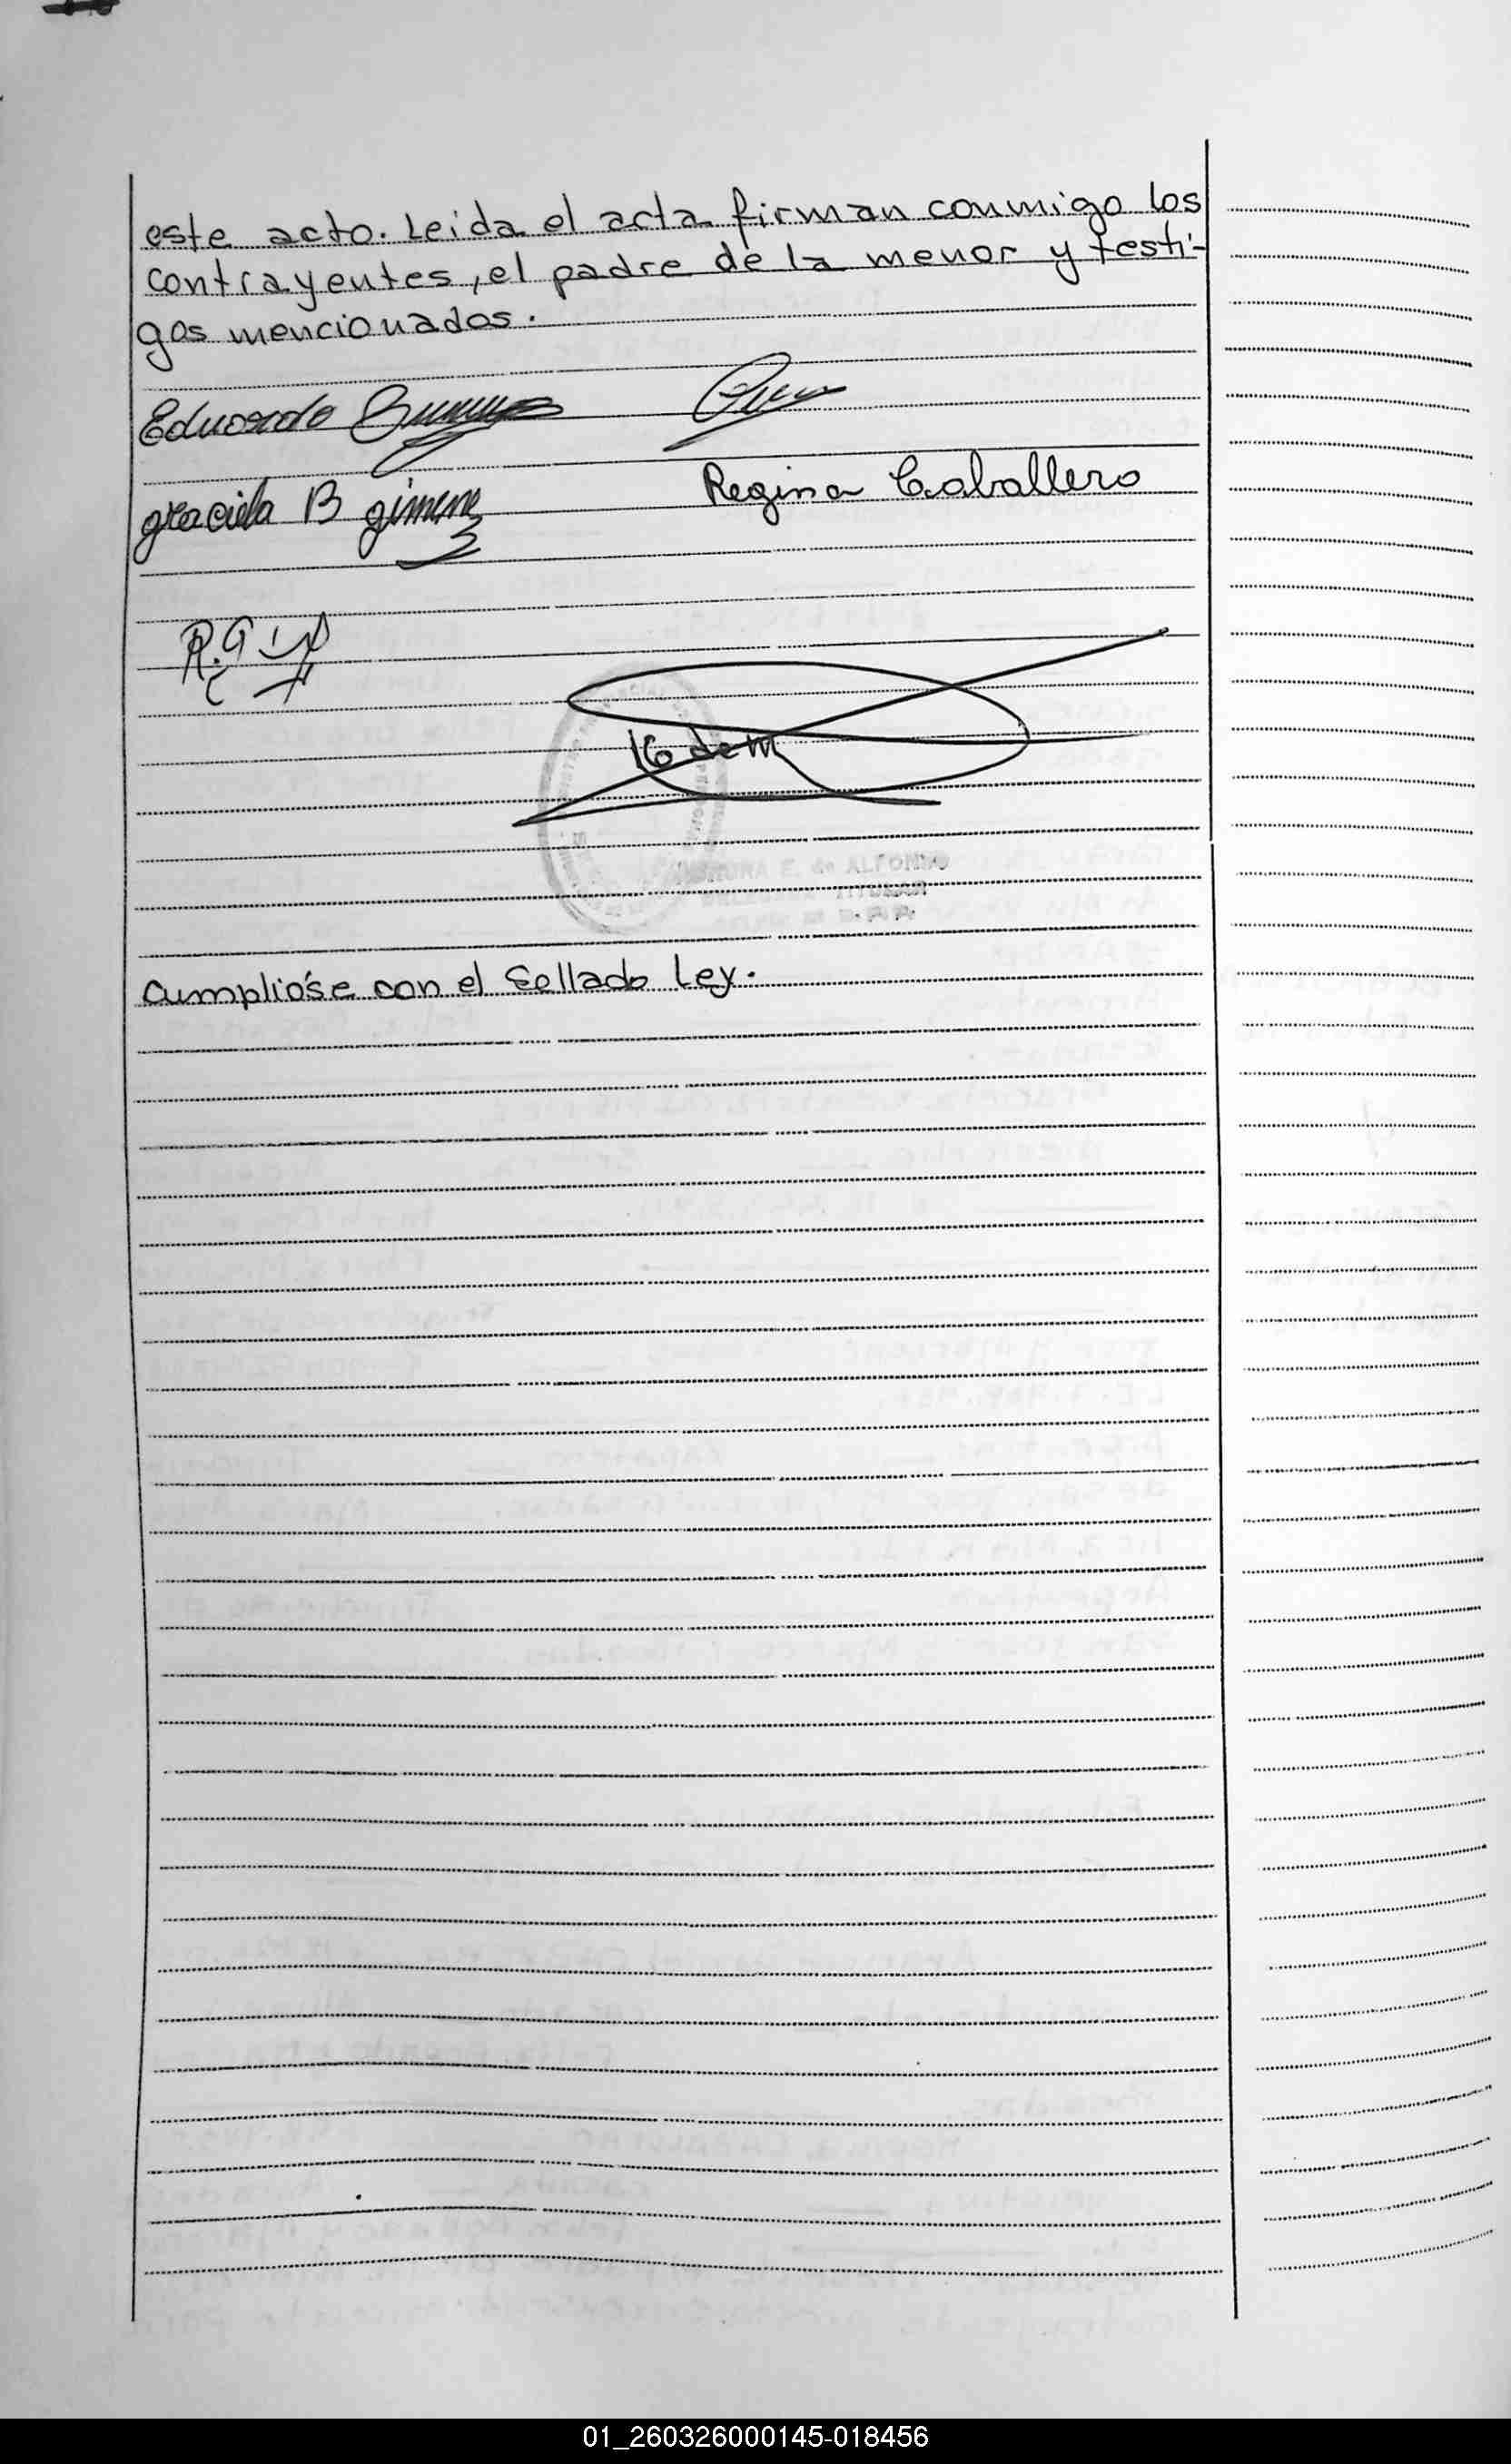 este acto. Leida el acta firman conmigo los
contrayentes, el padre de la menor y testi-
gos mencionados.
Eduardo
graciela B gimenez
Regina Caballero
E. de ALFONSO
DELEGADA TITULAR
Cumplióse con el Sellado Ley.
01_260326000145-018456